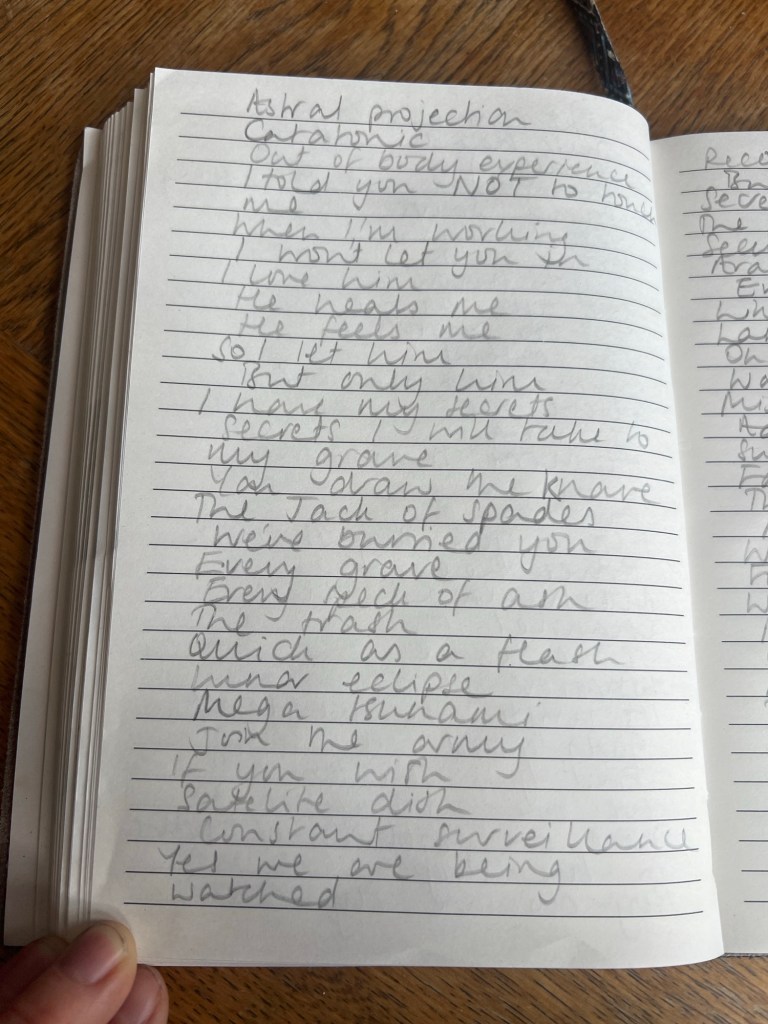 Astral projection
Catatonic
Out of body experience
I told you NOT to touch
me
When I'm working
I won't let you in
I love him
He heals me
He feels me
So I let him
But only him
I have my secrets
Secrets I will take to
my grave
You draw the knave
The Jack of spades
We've burried you
Every grave
Every fleck of ash
The trash
Quick as a flash
lunar eclipse
Mega tsunami
Join the army
If you wish
Satelite dish
Constant surveillance
Yes we are being
watched
Reco
Secre
The